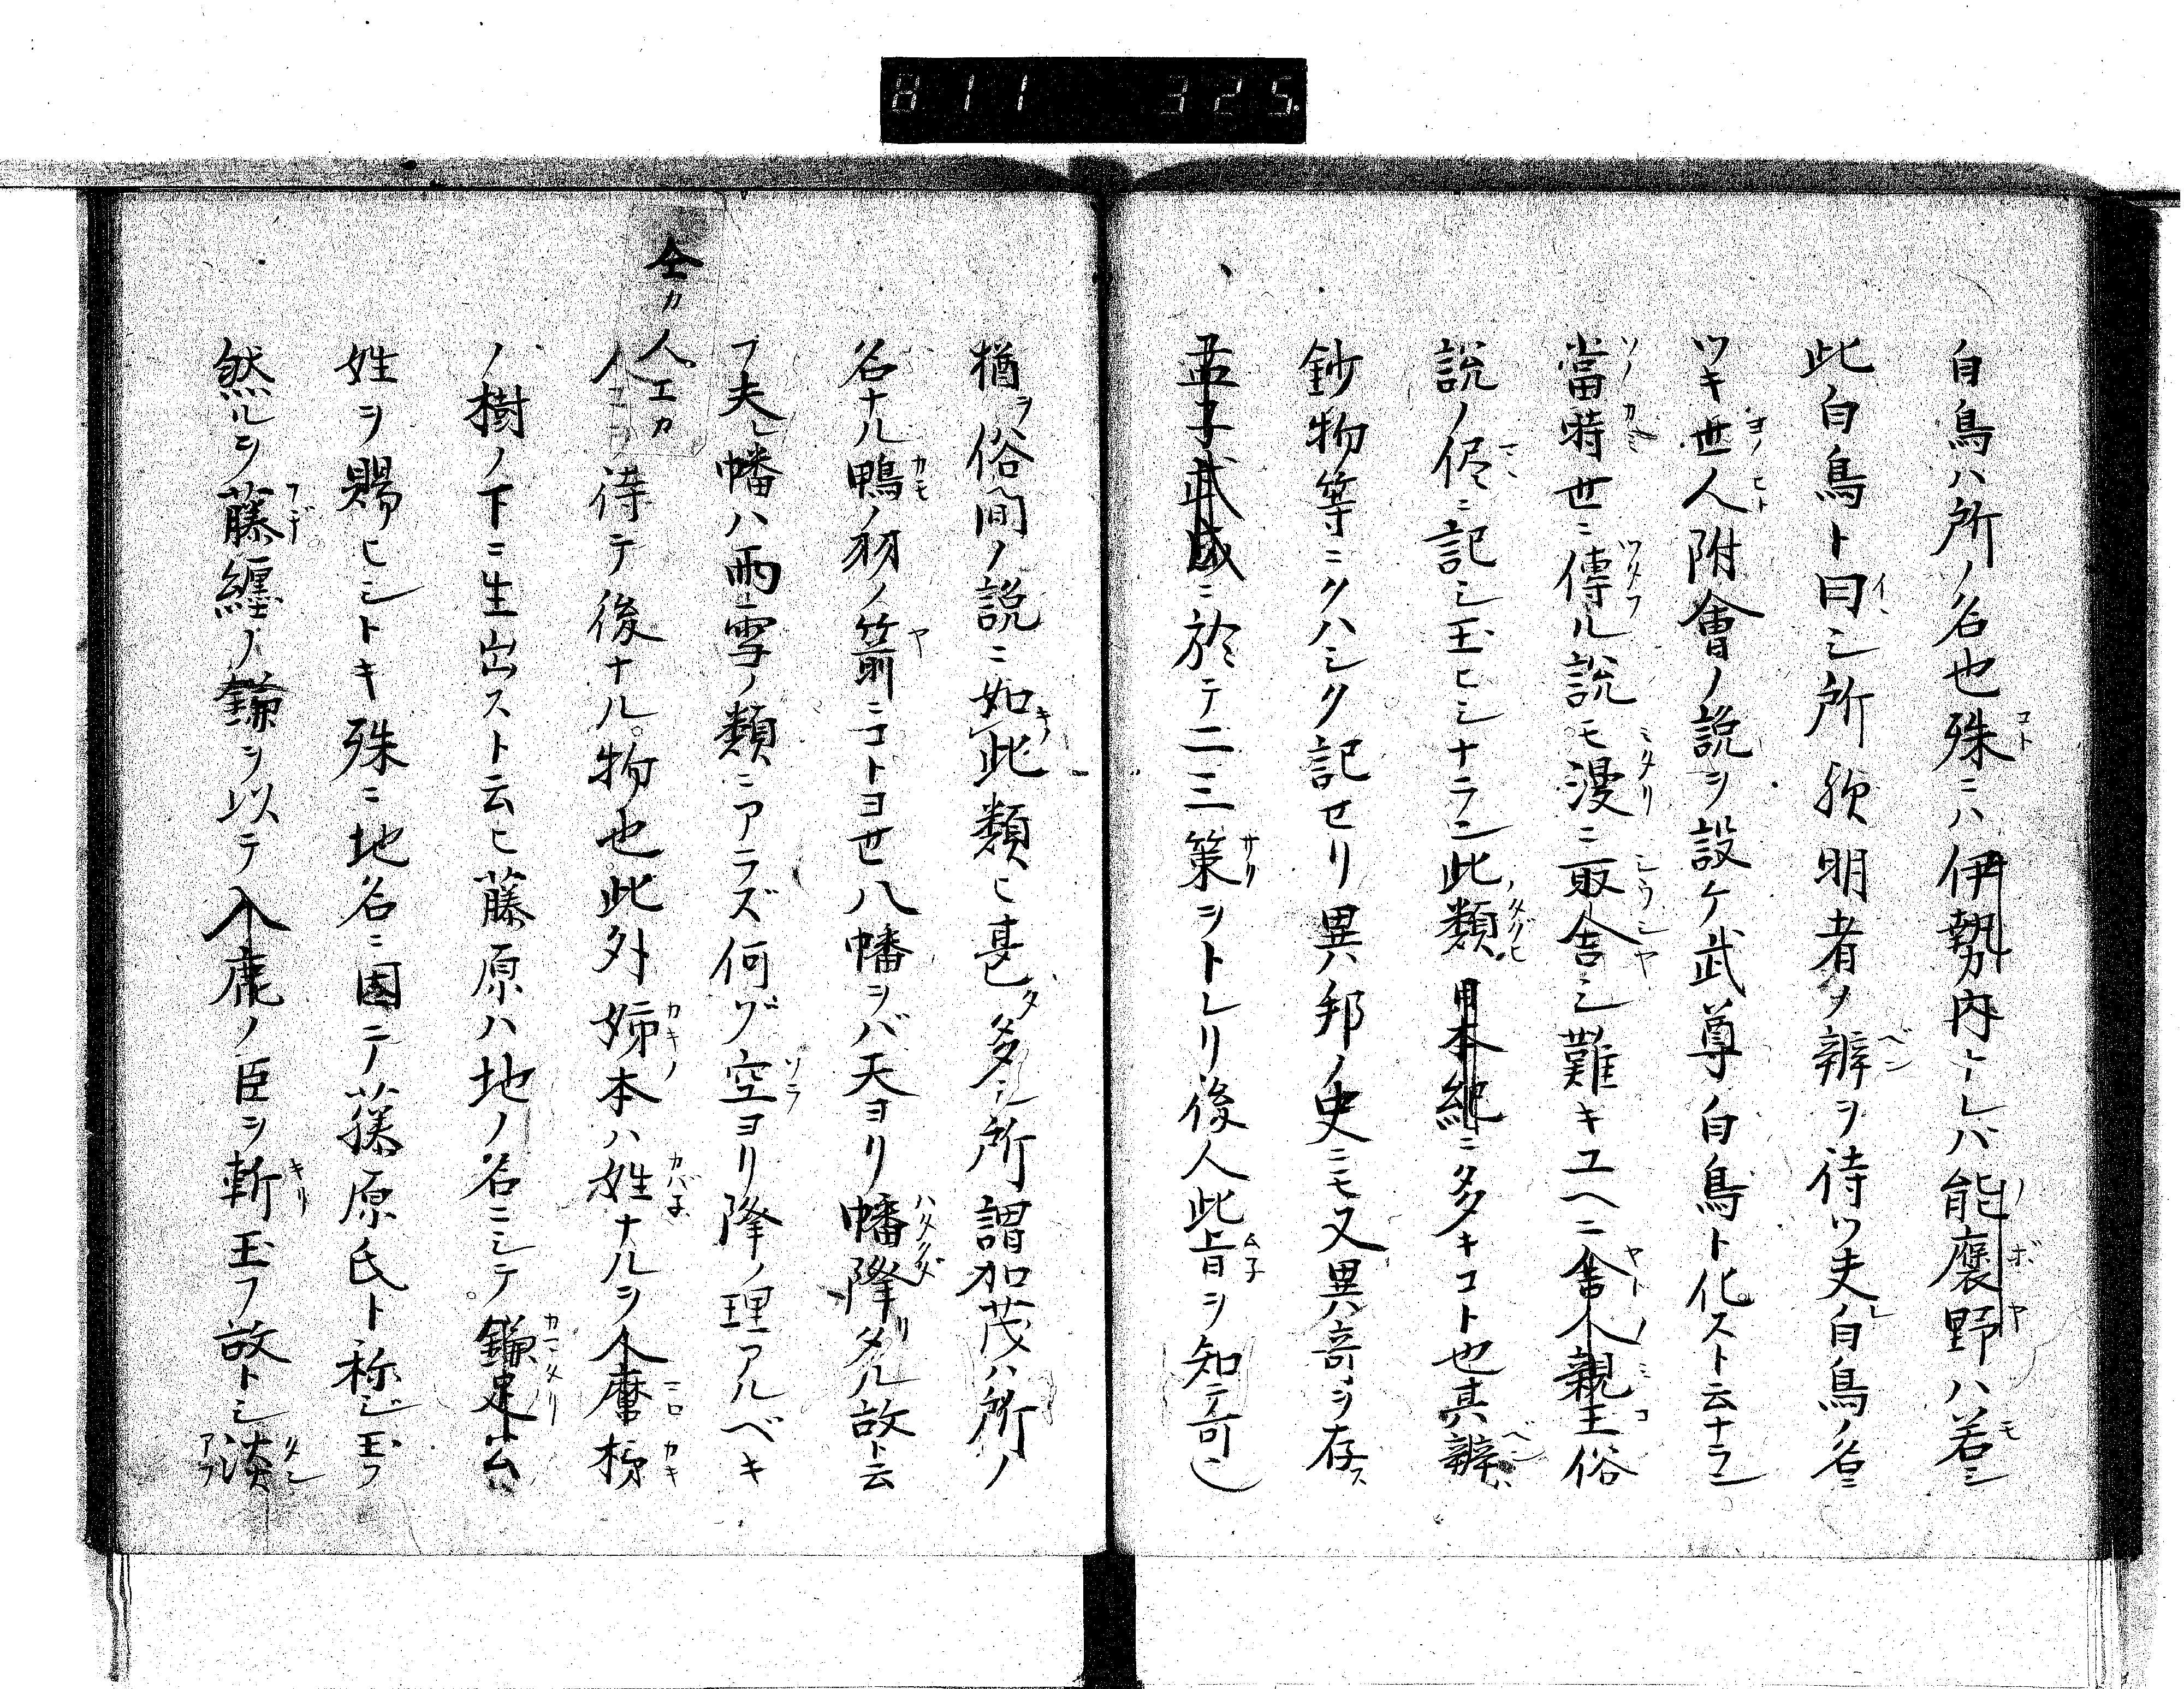 811 325
白鳥ハ所ノ名也殊ニハ伊勢内ナレバ能褒野ハ若シ
此白鳥ト曰シ所歟明者ノ辨ヲ待ツ夫白鳥ノ名ニ
ツキ世人附會ノ説ヲ設ケ武尊白鳥ト化スト云ナラン
當時世ニ傳ル説モ漫ニ取舎シ難キユヘニ舎人親王俗
説ノ侭ニ記シ玉ヒシナラン此類日本紀ニ多キコト也其辨
鈔物等ニクハシク記セリ異邦ノ史ニモ又異奇ヲ存ス
孟子武成ニ於テ二三策ヲトレリ後人此旨ヲ知テ可也
猶ヲ俗間ノ説ニ如此類ヒ甚多シ所謂加茂ハ所ノ
名ナル鴨ノ羽ノ箭ニコトヨせ八幡ヲバ天ヨリ幡降リタル故ト云
フ夫レ幡ハ雨雪ノ類ニアラズ何ゾ空ヨリ降ノ理アルベキ
人ヱヲ待テ後ナル物也此外姉本ハ姓ナルヲ人麿柿
ノ樹ノ下ニ生出スト云ヒ藤原ハ地ノ名ニシテ鎌足公
姓ヲ賜ヒシトキ殊ニ地名ニ因テ藤原氏ト称ジ玉フ
然ルヲ藤纏ノ鎌ヲ以テ入鹿ノ臣ヲ斬玉フ故トシ淡
仝カ人ヱカ